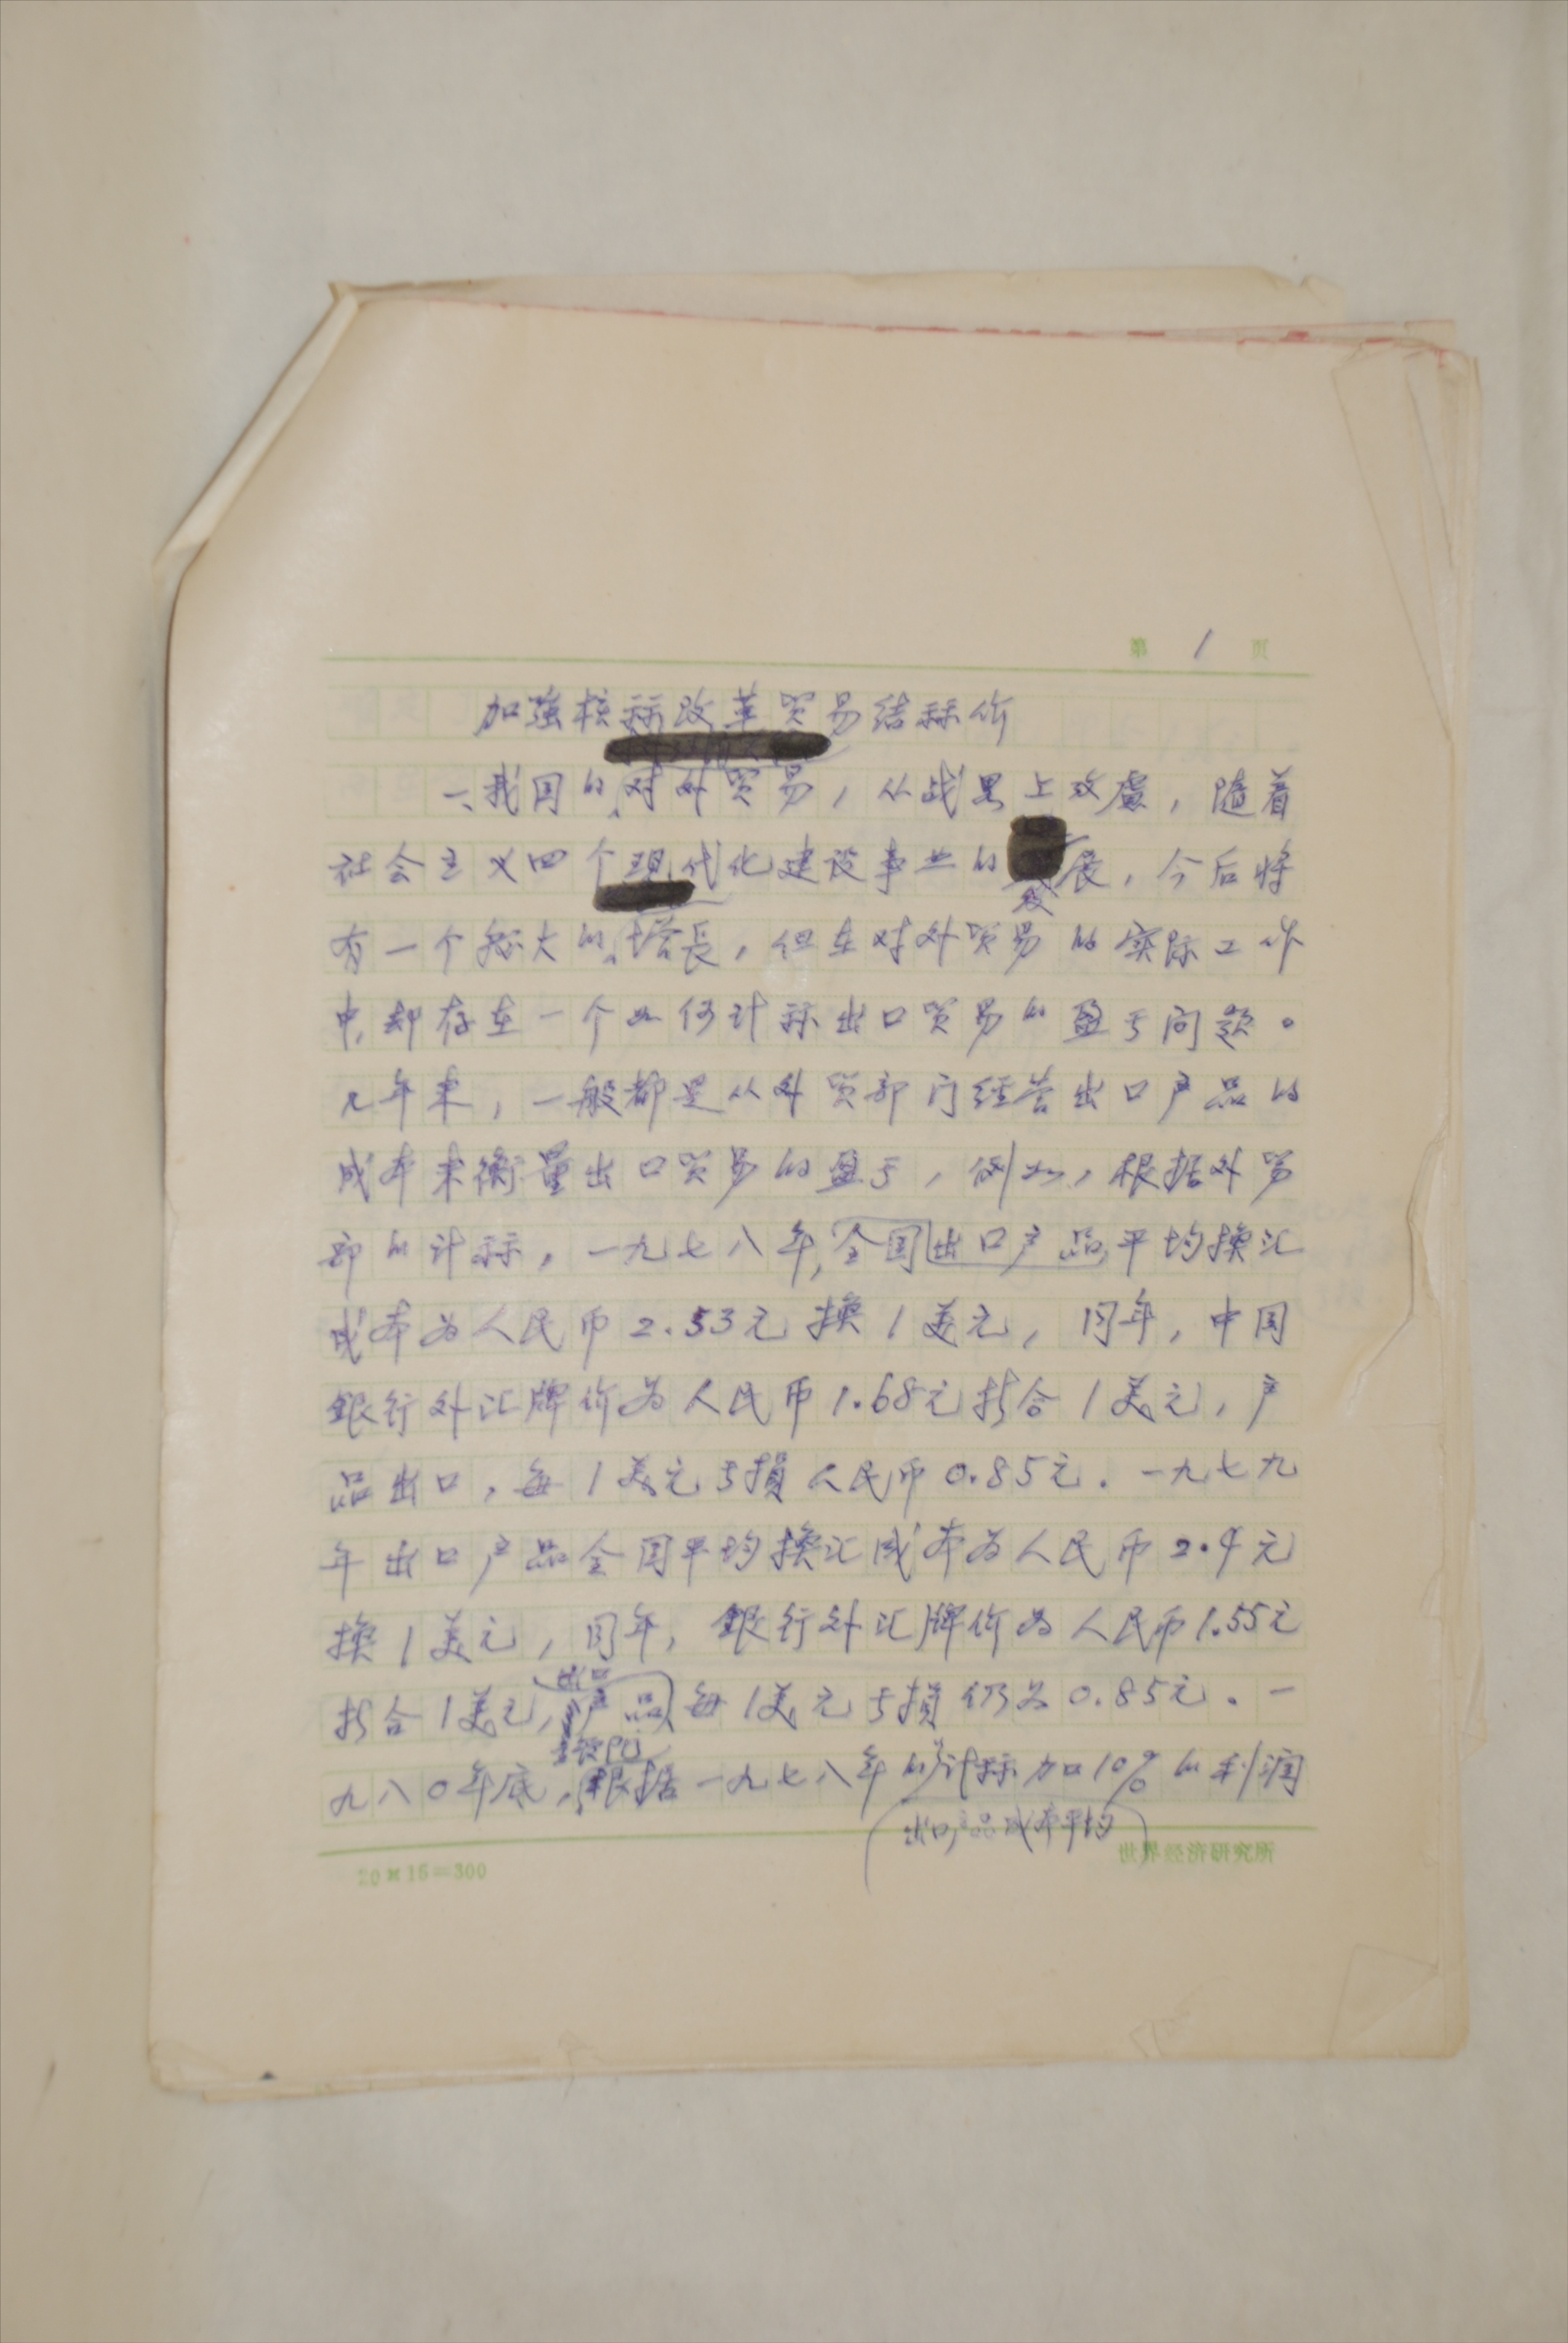 第 1 页
加强核祘改革贸易结祘价
一、我国的对外贸易，从战畧上攷慮，随着
社会主义四个现代化建设事业的发展，今后将
有一个很大的增长，但在对外贸易的实际工作
中，却存在一个如何计祘出口贸易的盈亏问题。
几年来，一般都是从外贸部门经营出口产品的
成本来衡量出口贸易的盈亏，例如，根据外贸
部的计祘，一九七八年，全国出口产品平均换汇
成本为人民币2.53元换1美元，同年，中国
銀行外汇牌价为人民币1.68元折合1美元，产
品出口，每1美元亏損人民币0.85元．一九七九
年出口产品全国平均换汇成本为人民币2.4元
换1美元，同年，銀行外汇牌价为人民币1.55元
出口
折合1美元，产品每1美元亏损仍为0.85元。一
九八〇年底，根据一九七八年的计祘加10%的利润
出口产品成本平均
20×15=300
世界经济研究所